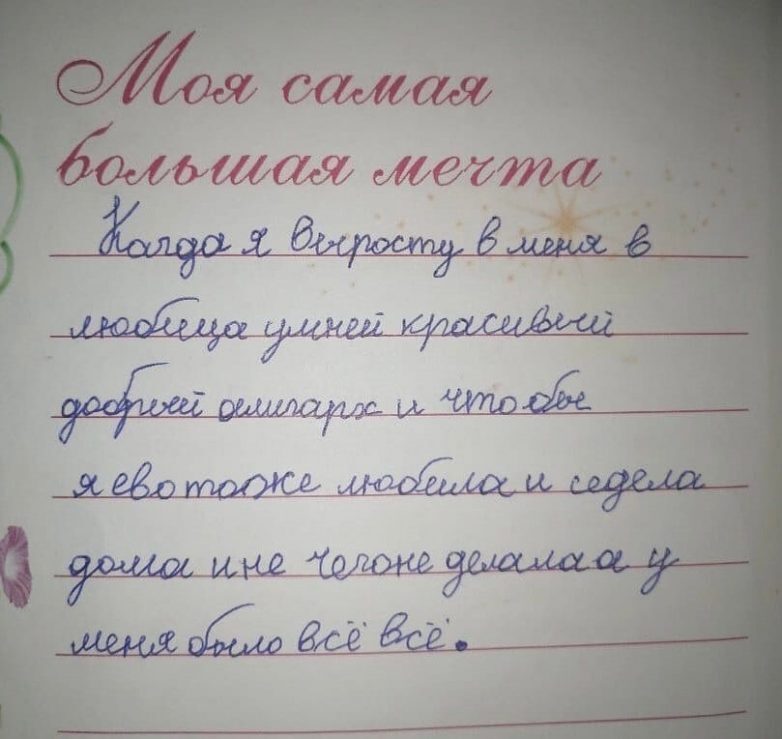 Моя самая
большая мечта
Когда я выросту в меня в
любица умней красивый
добрый олигарх и что бы
я ево тоже любила и седела
дома и не чегоне делала а у
меня было всё всё.